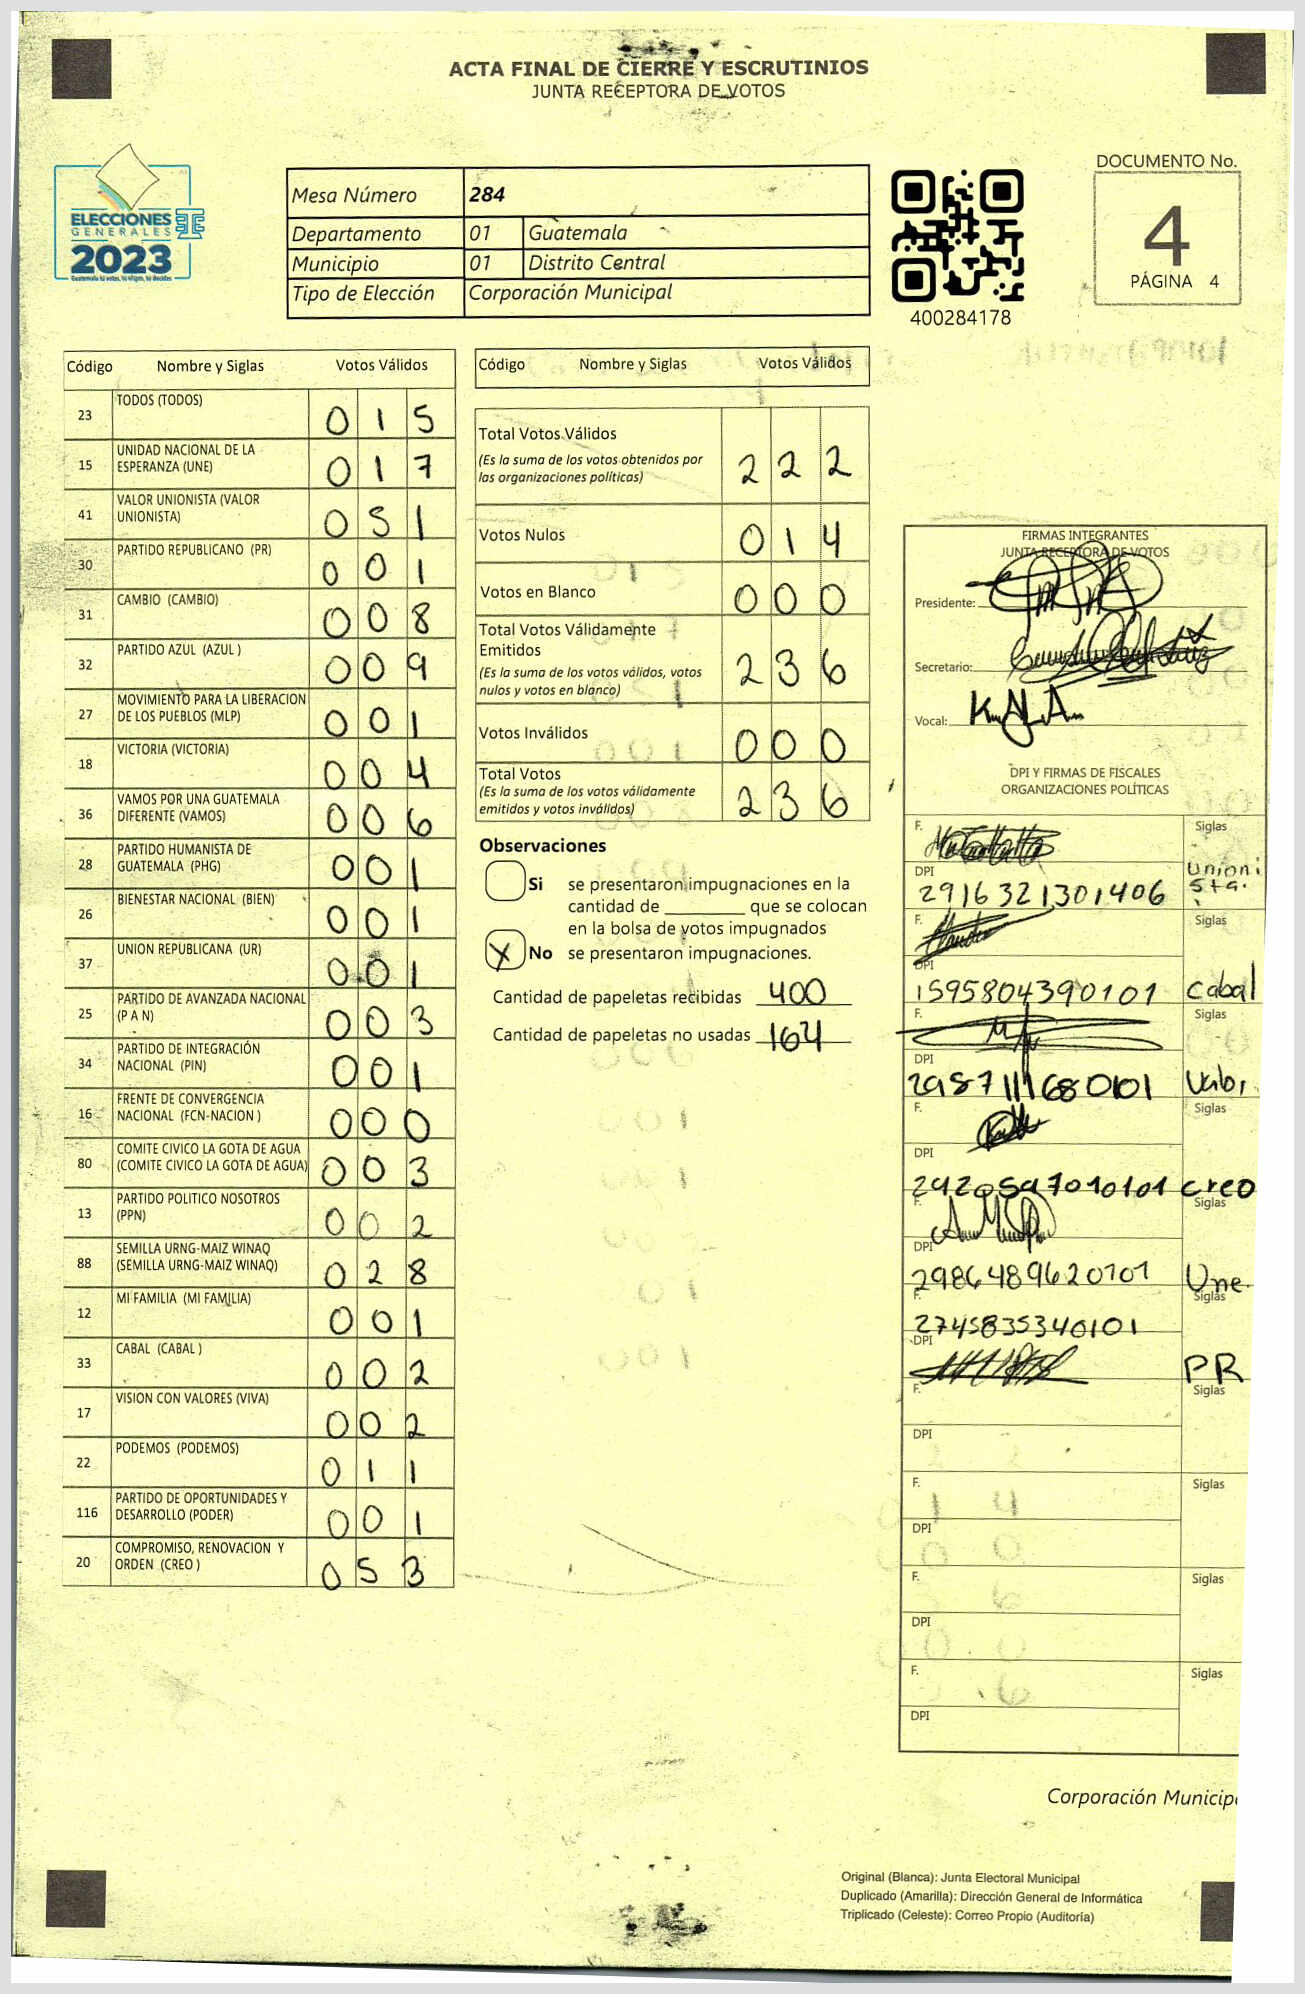 ACTA FINAL DE CIERRE Y ESCRUTINIOS
JUNTA RECEPTORA DE VOTOS
ELECCIONES
GENERALES
2023
Guatemala tú votas, tú eliges, tú decides
Mesa Número 284
Departamento 01 Guatemala
Municipio 01 Distrito Central
Tipo de Elección Corporación Municipal
400284178
DOCUMENTO No.
4
PÁGINA 4
Código Nombre y Siglas Votos Válidos
23 TODOS (TODOS) 0 1 5
15 UNIDAD NACIONAL DE LA ESPERANZA (UNE) 0 1 7
41 VALOR UNIONISTA (VALOR UNIONISTA) 0 5 1
30 PARTIDO REPUBLICANO (PR) 0 0 1
31 CAMBIO (CAMBIO) 0 0 8
32 PARTIDO AZUL (AZUL ) 0 0 9
27 MOVIMIENTO PARA LA LIBERACION DE LOS PUEBLOS (MLP) 0 0 1
18 VICTORIA (VICTORIA) 0 0 4
36 VAMOS POR UNA GUATEMALA DIFERENTE (VAMOS) 0 0 6
28 PARTIDO HUMANISTA DE GUATEMALA (PHG) 0 0 1
26 BIENESTAR NACIONAL (BIEN) 0 0 1
37 UNION REPUBLICANA (UR) 0 0 1
25 PARTIDO DE AVANZADA NACIONAL (P A N) 0 0 3
34 PARTIDO DE INTEGRACIÓN NACIONAL (PIN) 0 0 1
16 FRENTE DE CONVERGENCIA NACIONAL (FCN-NACION ) 0 0 0
80 COMITE CIVICO LA GOTA DE AGUA (COMITE CIVICO LA GOTA DE AGUA) 0 0 3
13 PARTIDO POLITICO NOSOTROS (PPN) 0 0 2
88 SEMILLA URNG-MAIZ WINAQ (SEMILLA URNG-MAIZ WINAQ) 0 2 8
12 MI FAMILIA (MI FAMILIA) 0 0 1
33 CABAL (CABAL ) 0 0 2
17 VISION CON VALORES (VIVA) 0 0 2
22 PODEMOS (PODEMOS) 0 1 1
116 PARTIDO DE OPORTUNIDADES Y DESARROLLO (PODER) 0 0 1
20 COMPROMISO, RENOVACION Y ORDEN (CREO ) 0 5 3
Código Nombre y Siglas Votos Válidos
Total Votos Válidos
(Es la suma de los votos obtenidos por las organizaciones políticas) 2 2 2
Votos Nulos 0 1 4
Votos en Blanco 0 0 0
Total Votos Válidamente Emitidos
(Es la suma de los votos válidos, votos nulos y votos en blanco) 2 3 6
Votos Inválidos 0 0 0
Total Votos
(Es la suma de los votos válidamente emitidos y votos inválidos) 2 3 6
Observaciones
Si se presentaron impugnaciones en la
cantidad de ________ que se colocan
en la bolsa de votos impugnados
X No se presentaron impugnaciones.
Cantidad de papeletas recibidas 400
Cantidad de papeletas no usadas 164
FIRMAS INTEGRANTES
JUNTA RECEPTORA DE VOTOS
Presidente:
Secretario:
Vocal:
DPI Y FIRMAS DE FISCALES
ORGANIZACIONES POLÍTICAS
F. Siglas
DPI 2916321301406 Unionista.
F. Siglas
DPI 1595804390101 Cabal
F. Siglas
DPI 2987111680101
F. Siglas
DPI 2920597010101 creo
F. Siglas
DPI 2986489620101 Une.
F. Siglas
2745835340101
DPI PR
F. Siglas
DPI
F. Siglas
DPI
F. Siglas
DPI
F. Siglas
DPI
Corporación Municip
Original (Blanca): Junta Electoral Municipal
Duplicado (Amarilla): Dirección General de Informática
Triplicado (Celeste): Correo Propio (Auditoría)